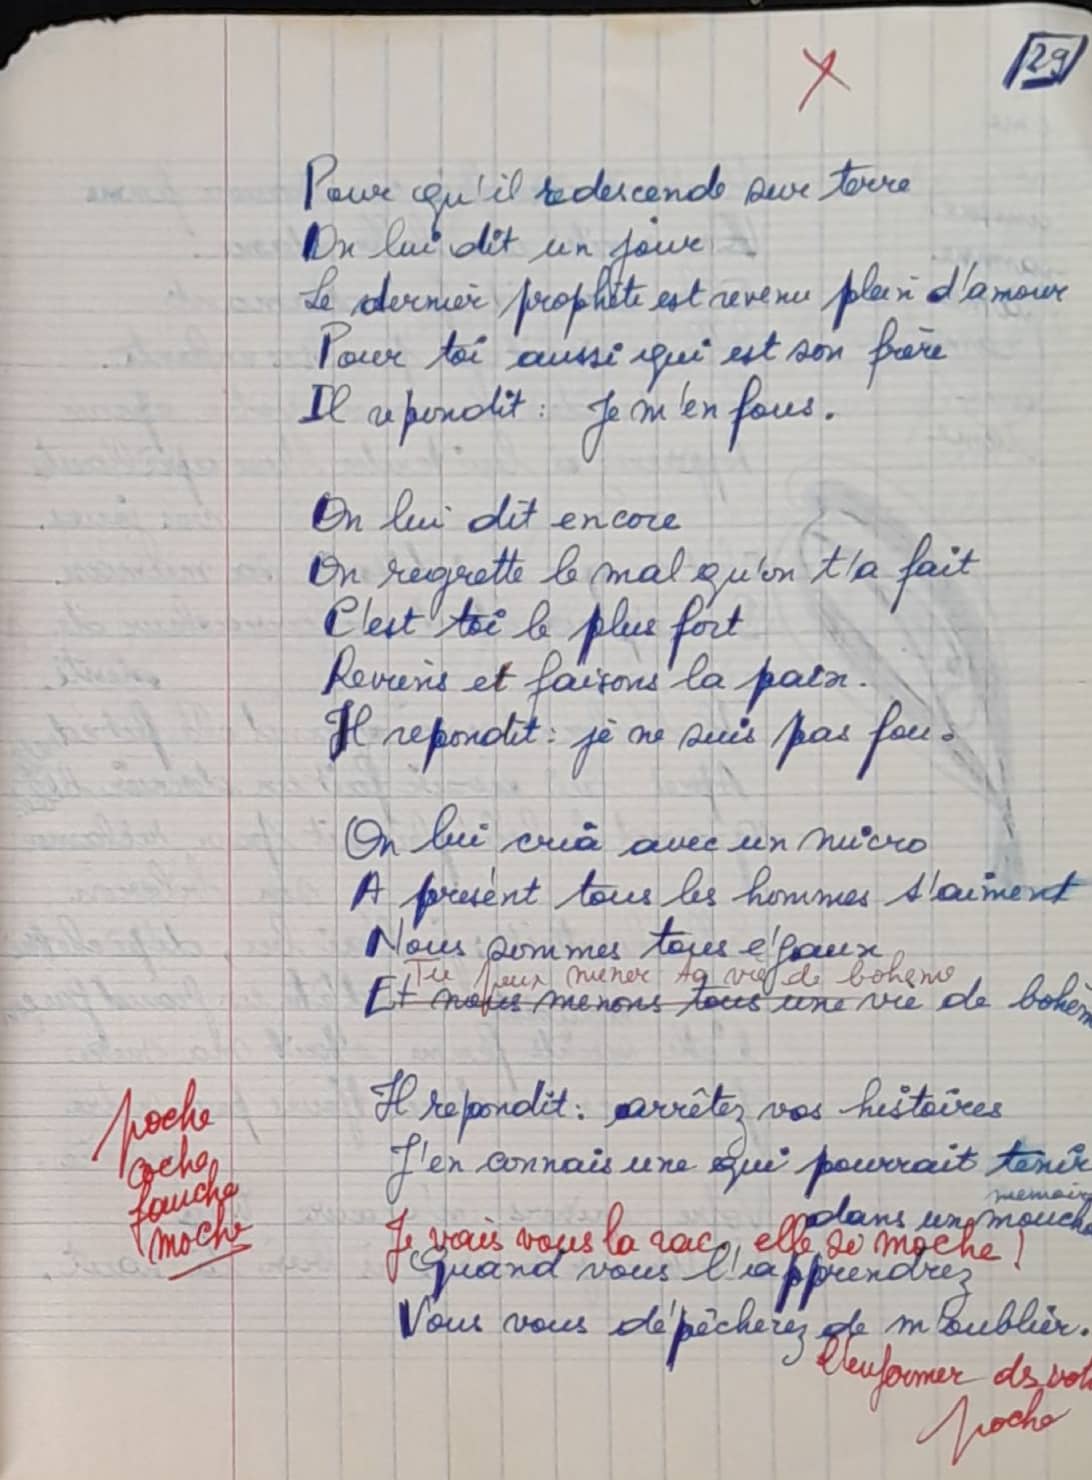 29
Pour qu'il redescende sur terre
On lui dit un jour
Le dernier prophète est revenu plein d'amour
Pour toi aussi qui est son frère
Il repondit : Je m'en fous.
On lui dit encore
On regrette le mal qu'on t'a fait
C'est toi le plus fort
Reviens et faisons la paix.
Il repondit : je ne suis pas fou.
On lui cria avec un micro
A présent tous les hommes s'aiment
Nous sommes tous égaux
Tu peux mener ta vie de bohème
Et nous menons tous une vie de bohèm
Il repondit : arrêtez vos histoires
J'en connais une qui pourrait tenir
memoir
dans un mouch
Je vais vous la rac, elle si moche !
Quand vous l'apprendrez
Vous vous dépêcherez de m'oublier.
L'enfermer ds vot
poche
poche
coche
fauche
moche